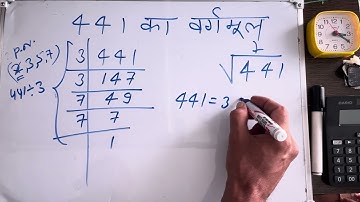 441 का वर्गमूल
p.n.
(2,3,5,7)
441÷3
3 441
3 147
7 49
7 7
1
2
√441
441=3